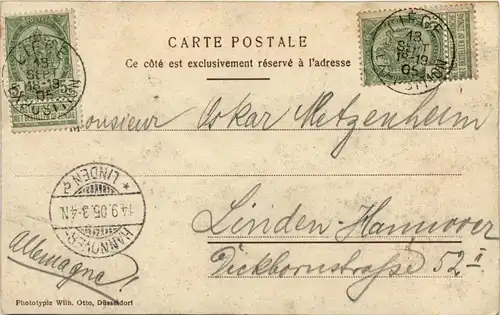 CARTE POSTALE
Ce côté est exclusivement réservé à l'adresse
LIEGE
13
SEPT
18-19
05
LIEGE
13
SEPT
18-19
05
Monsieur Oskar Metzenheim
HANNOVER-
14.9.05.3-4N
* LINDEN 2
Linden-Hannover
Dickbornstraße 52 II
Allemagna!
Phototypie Wilh. Otto, Düsseldorf